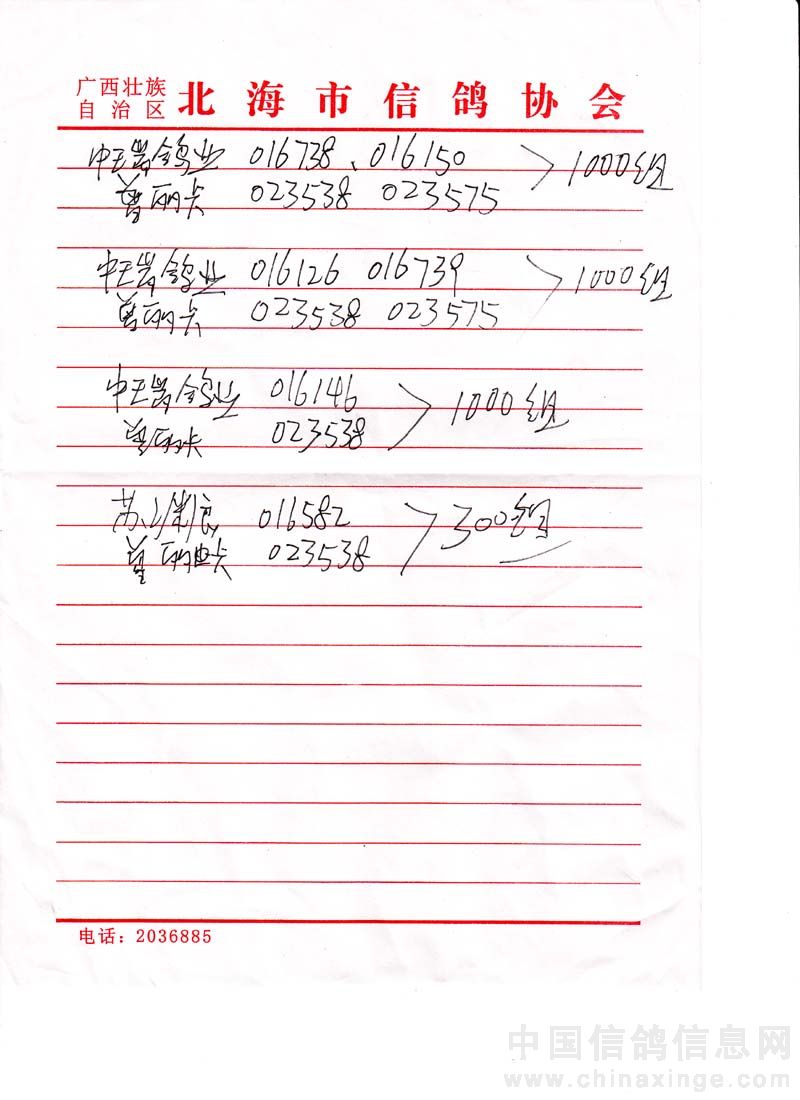 广西壮族
自治区 北海市信鸽协会
中王岩鸽业 016738、016150 > 1000组
丽卡 023538 023575
中王岩鸽业 016126 016739 > 1000组
丽卡 023538 023575
中王岩鸽业 016146 > 1000组
丽卡 023538
苏 016582 > 300组
丽 卡 023538
电话：2036885
中国信鸽信息网
www.chinaxinge.com